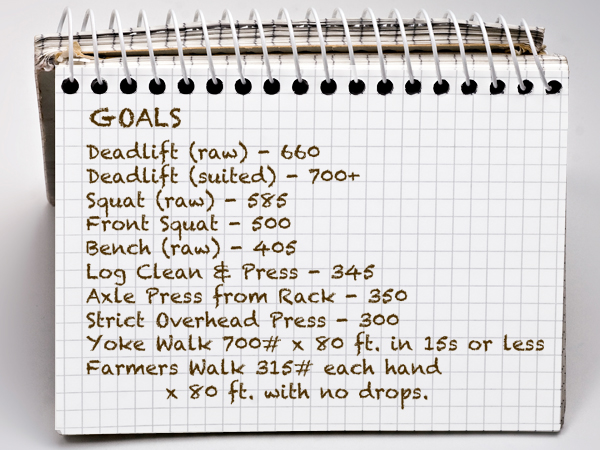 GOALS
Deadlift (raw) - 660
Deadlift (suited) - 700+
Squat (raw) - 585
Front Squat - 500
Bench (raw) - 405
Log Clean & Press - 345
Axle Press from Rack - 350
Strict Overhead Press - 300
Yoke Walk 700# x 80 ft. in 15s or less
Farmers Walk 315# each hand
x 80 ft. with no drops.